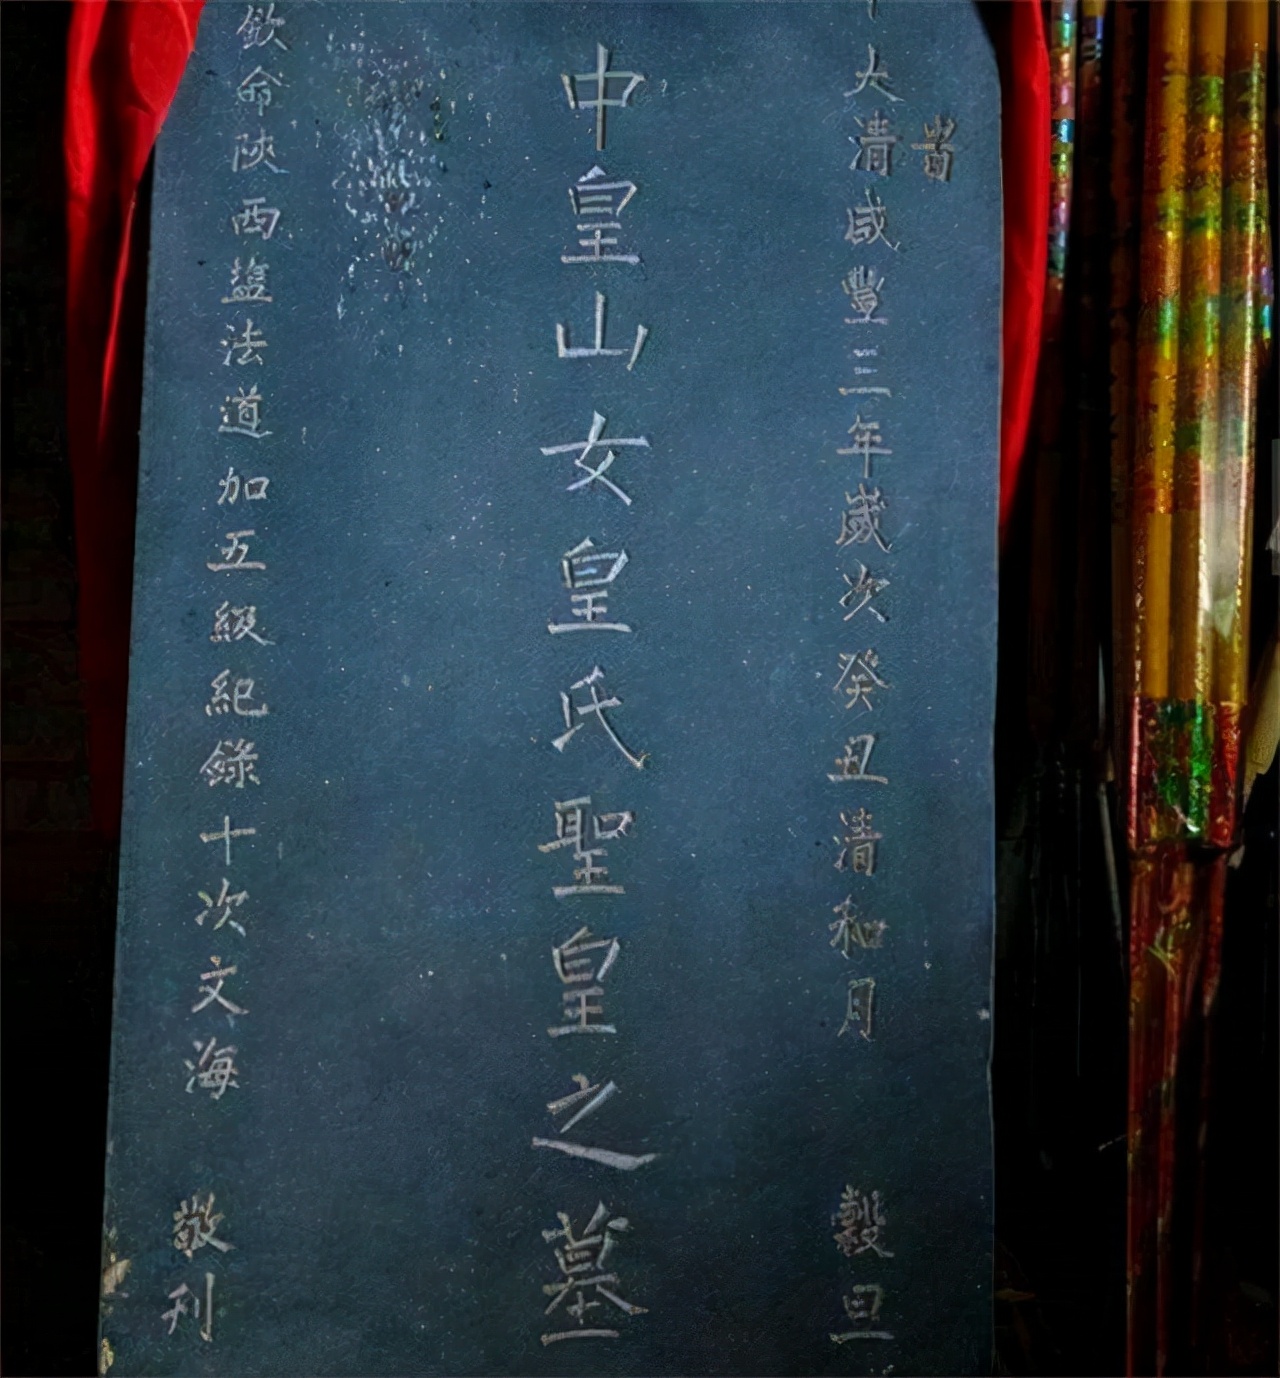 大清咸豐三年歲次癸丑清和月 穀旦
中皇山女皇氏聖皇之墓
欽命陝西鹽法道加五級紀錄十次文海 敬刊